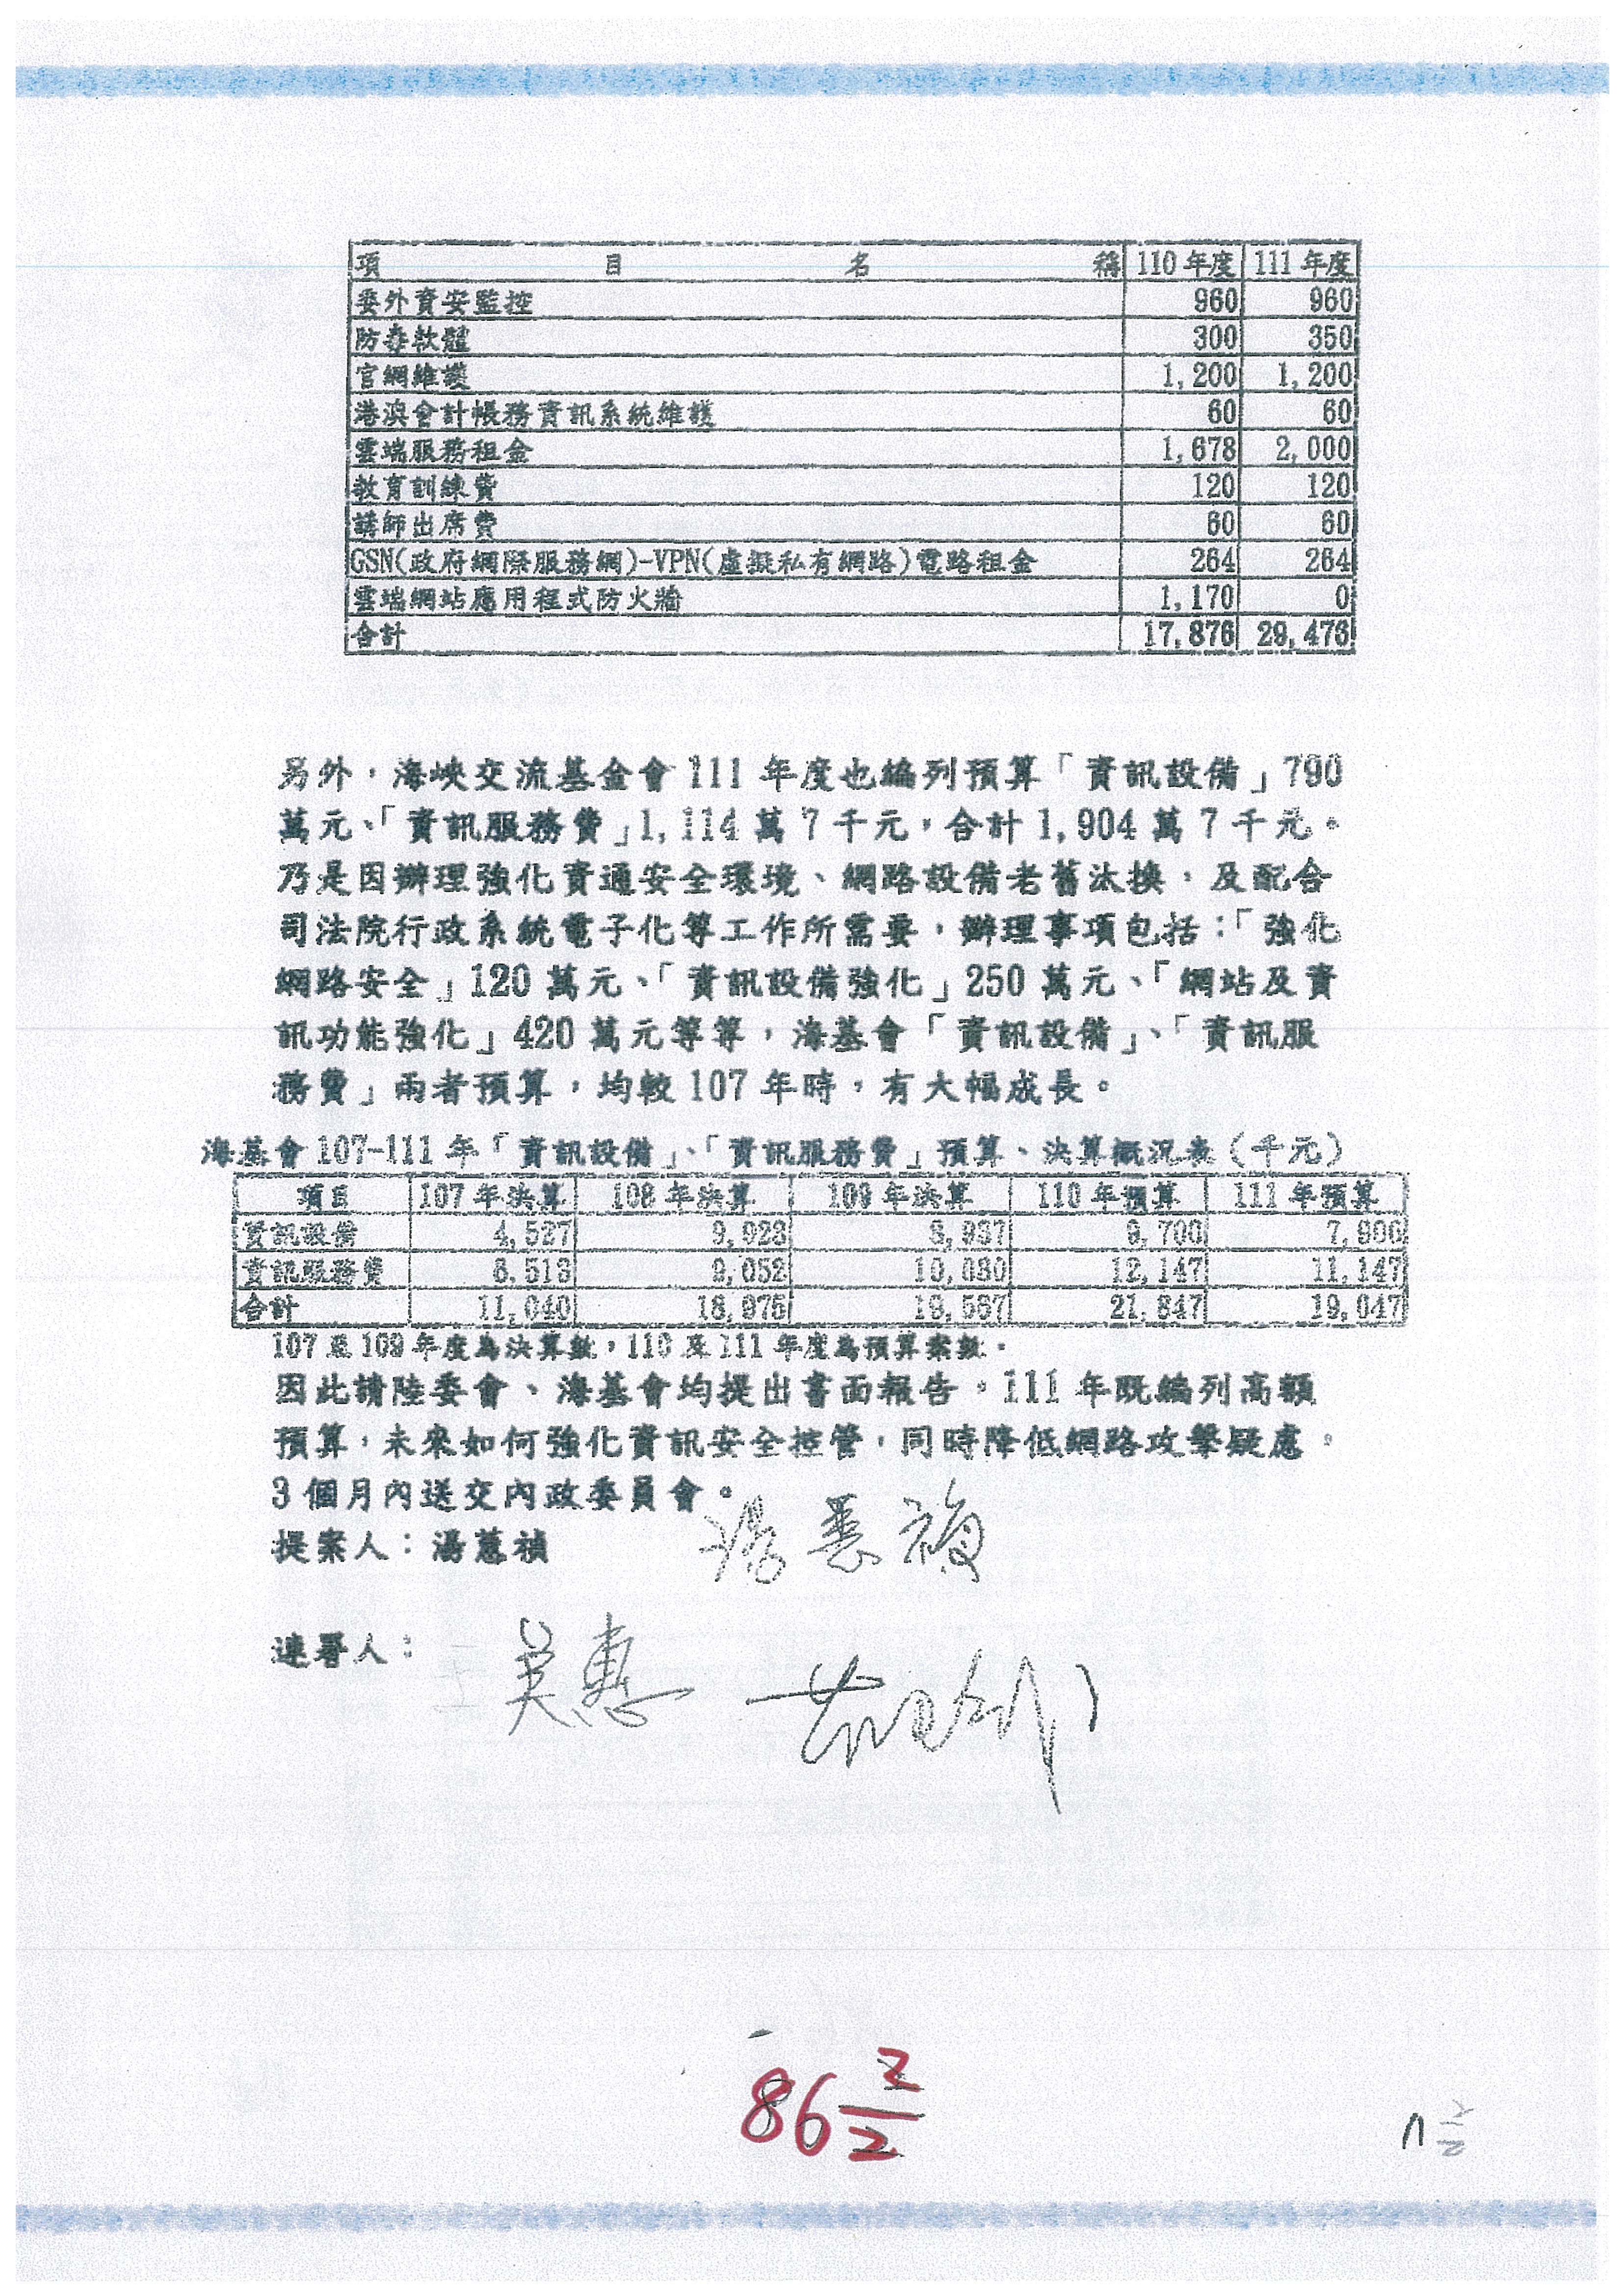 項目名稱 110 年度 111 年度
委外資安監控 960 960
防毒軟體 300 350
官網維護 1,200 1,200
港澳會計帳務資訊系統維護 60 60
雲端服務租金 1,678 2,000
教育訓練費 120 120
講師出席費 60 60
GSN(政府網際服務網)-VPN(虛擬私有網路)電路租金 264 264
雲端網站應用程式防火牆 1,170 0
合計 17,876 29,476
另外，海峽交流基金會 111 年度也編列預算「資訊設備」790
萬元、「資訊服務費」1,114 萬 7 千元，合計 1,904 萬 7 千元。
乃是因辦理強化資通安全環境、網路設備老舊汰換，及配合
司法院行政系統電子化等工作所需要，辦理事項包括：「強化
網路安全」120 萬元、「資訊設備強化」250 萬元、「網站及資
訊功能強化」420 萬元等等，海基會「資訊設備」、「資訊服
務費」兩者預算，均較 107 年時，有大幅成長。
海基會 107-111 年「資訊設備」、「資訊服務費」預算、決算概況表（千元）
項目 107 年決算 108 年決算 109 年決算 110 年預算 111 年預算
資訊設備 4,527 9,923 9,700
資訊服務費 9,052 12,147 11,147
合計 11,040 18,975 21,847 19,047
107 至 109 年度為決算數，110 及 111 年度為預算案數。
因此請陸委會、海基會均提出書面報告，111 年既編列高額
預算，未來如何強化資訊安全控管，同時降低網路攻擊疑慮。
3 個月內送交內政委員會。
提案人：湯蕙禎 湯蕙禎
連署人：
86 2/2